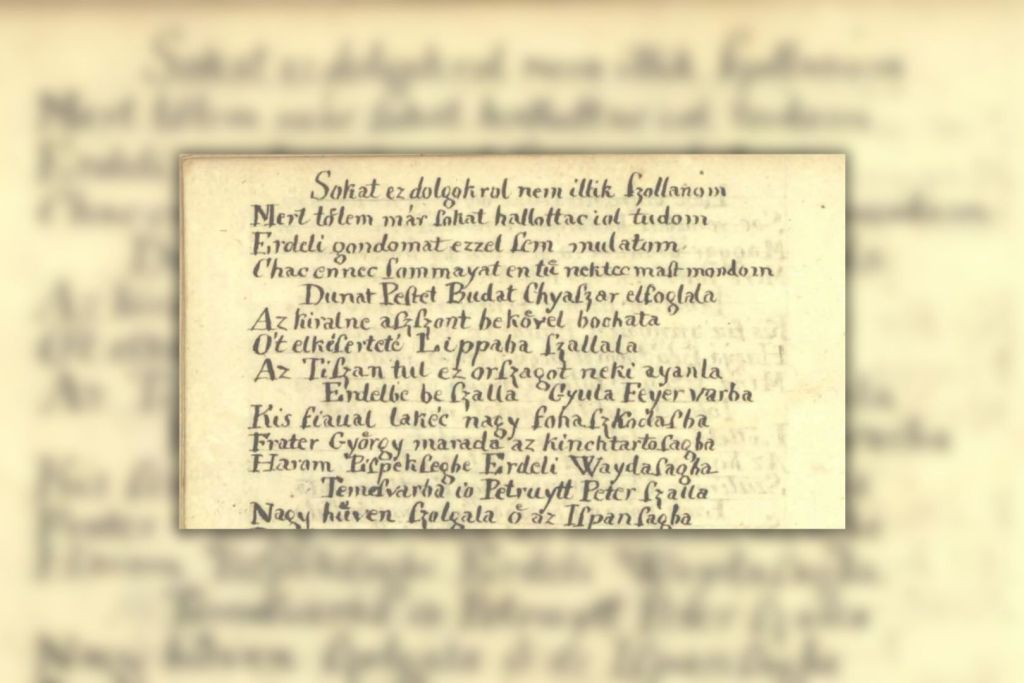 Sokat ez dolgokrol nem illik ſzollanom
Mert tőlem már ſokat hallottac iol tudom
Erdeli gondomat ezzel ſem mulatom
Chac ennec ſommayat en tů nektec maſt mondom
Dunat Peſtet Budat Chyaſzar elfoglala
Az kiralne aſzſzont bekővel bochata
Ŏt elkéſerteté Lippaba ſzallala
Az Tiſzan tul ez orſzagot neki ayanla
Erdelbe be ſzalla Gyula Feyer varba
Kis fiaual lakéc nagy fohaſzkodaſba
Frater György marada az kinchtartoſagba
Haram Piſpekſegbe Erdeli Waydaſagba
Temeſvarba io Petruytt Peter ſzalla
Nagy hűven ſzolgala ő az Iſpanſagba